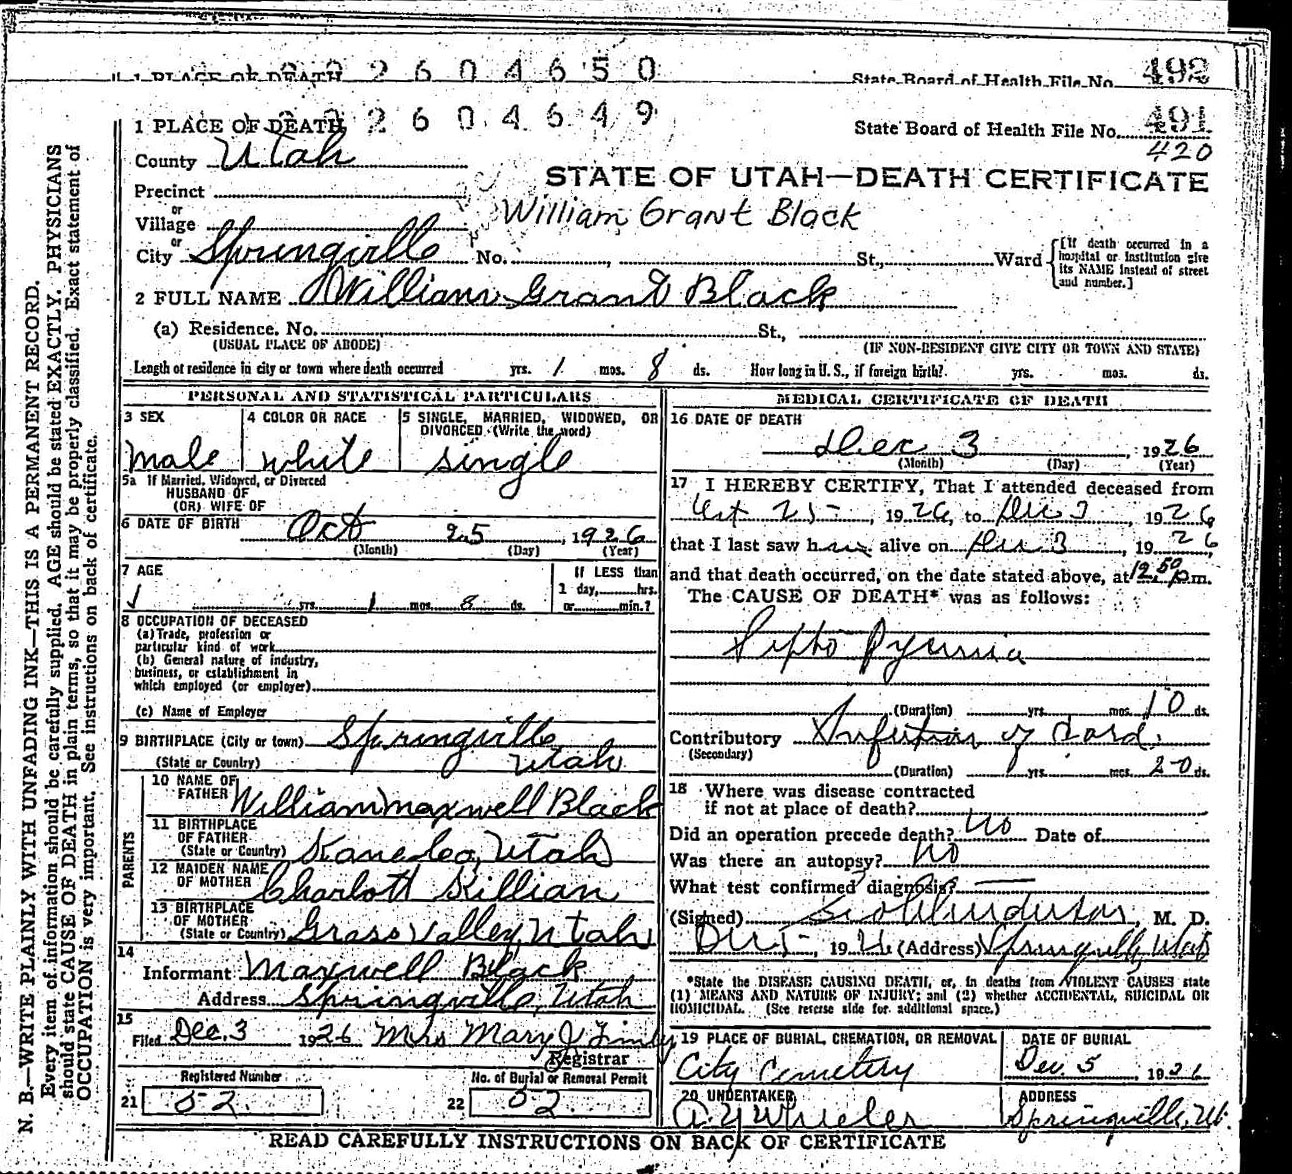 1 PLACE OF DEATH 2 6 0 4 6 5 0 State Board of Health File No. 492
1 PLACE OF DEATH 2 6 0 4 6 4 9 State Board of Health File No. 491
420
County Utah
STATE OF UTAH—DEATH CERTIFICATE
Precinct
or
Village
William Grant Black
or
City Springville No. , St., Ward [If death occurred in a hospital or institution give its NAME instead of street and number.]
2 FULL NAME William Grant Black
(a) Residence. No. St.,
(USUAL PLACE OF ABODE) (IF NON-RESIDENT GIVE CITY OR TOWN AND STATE)
Length of residence in city or town where death occurred yrs. 1 mos. 8 ds. How long in U. S., if foreign birth? yrs. mos. ds.
PERSONAL AND STATISTICAL PARTICULARS
3 SEX
male
4 COLOR OR RACE
white
5 SINGLE, MARRIED, WIDOWED, OR DIVORCED (Write the word)
single
5a If Married, Widowed, or Divorced
HUSBAND OF
(OR) WIFE OF
6 DATE OF BIRTH Oct 25, 1926
(Month) (Day) (Year)
7 AGE
yrs. 1 mos. 8 ds.
If LESS than
1 day, hrs.
or min.?
8 OCCUPATION OF DECEASED
(a) Trade, profession or
particular kind of work
(b) General nature of industry,
business, or establishment in
which employed (or employer)
(c) Name of Employer
9 BIRTHPLACE (City or town) Springville
(State or Country) Utah
PARENTS
10 NAME OF FATHER William Maxwell Black
11 BIRTHPLACE
OF FATHER
(State or Country) Kane Co, Utah
12 MAIDEN NAME
OF MOTHER Charlott Killian
13 BIRTHPLACE
OF MOTHER
(State or Country) Grass Valley, Utah
14
Informant Maxwell Black
Address Springville, Utah
15
Filed Dec. 3 1926 Mrs Mary J
Registrar
Registered Number No. of Burial or Removal Permit
21 52 22 52
MEDICAL CERTIFICATE OF DEATH
16 DATE OF DEATH
Dec 3, 1926
(Month) (Day) (Year)
17 I HEREBY CERTIFY, That I attended deceased from
Oct 25, 1926, to Dec 3, 1926,
that I last saw him alive on Dec. 3, 1926,
and that death occurred, on the date stated above, at 12:50 p.m.
The CAUSE OF DEATH* was as follows:
Septo Pyemia
(Duration) yrs. mos. 10 ds.
Contributory Infection of Cord.
(Secondary)
(Duration) yrs. mos. 20 ds.
18 Where was disease contracted
if not at place of death?
Did an operation precede death? No Date of
Was there an autopsy? No
What test confirmed diagnosis? —
(Signed) Anderson, M. D.
(Address) Springville, Utah
*State the DISEASE CAUSING DEATH, or, in deaths from VIOLENT CAUSES state
(1) MEANS AND NATURE OF INJURY; and (2) whether ACCIDENTAL, SUICIDAL OR
HOMICIDAL. (See reverse side for additional space.)
19 PLACE OF BURIAL, CREMATION, OR REMOVAL
City Cemetery
DATE OF BURIAL
Dec. 5 1926
20 UNDERTAKER
A. Y. Wheeler
ADDRESS
Springville, Ut.
READ CAREFULLY INSTRUCTIONS ON BACK OF CERTIFICATE
N. B.—WRITE PLAINLY WITH UNFADING INK—THIS IS A PERMANENT RECORD.
Every item of information should be carefully supplied. AGE should be stated EXACTLY. PHYSICIANS
should state CAUSE OF DEATH in plain terms, so that it may be properly classified. Exact statement of
OCCUPATION is very important. See instructions on back of certificate.